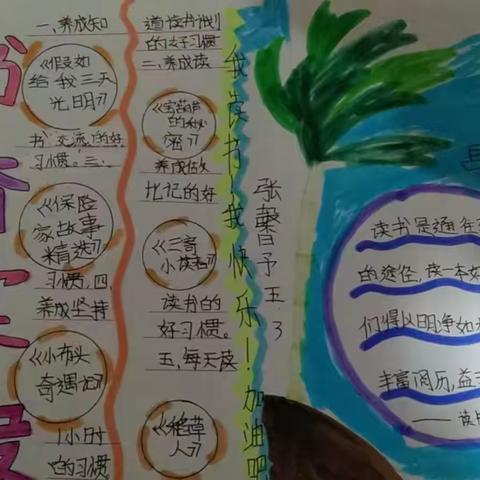 香
一、养成知
《假如
给我三天
光明》
书交流的好
习惯。三、
《保险
家故事
精选》
习惯,四,
养成坚持
《小布头
奇遇记》
1小时
的习惯
道读书计划
的好习惯
二、养成读
《宝葫芦
的秘
密》
养成做
比记的好
《三寄
小读者》
读书的
好习惯。
五,每天读
《稻草
人》
我读书!我快乐!加油吧
张馨予五.3
读书是通往
的途径,读一本好
们得以明净如
丰富阅历,益
——读